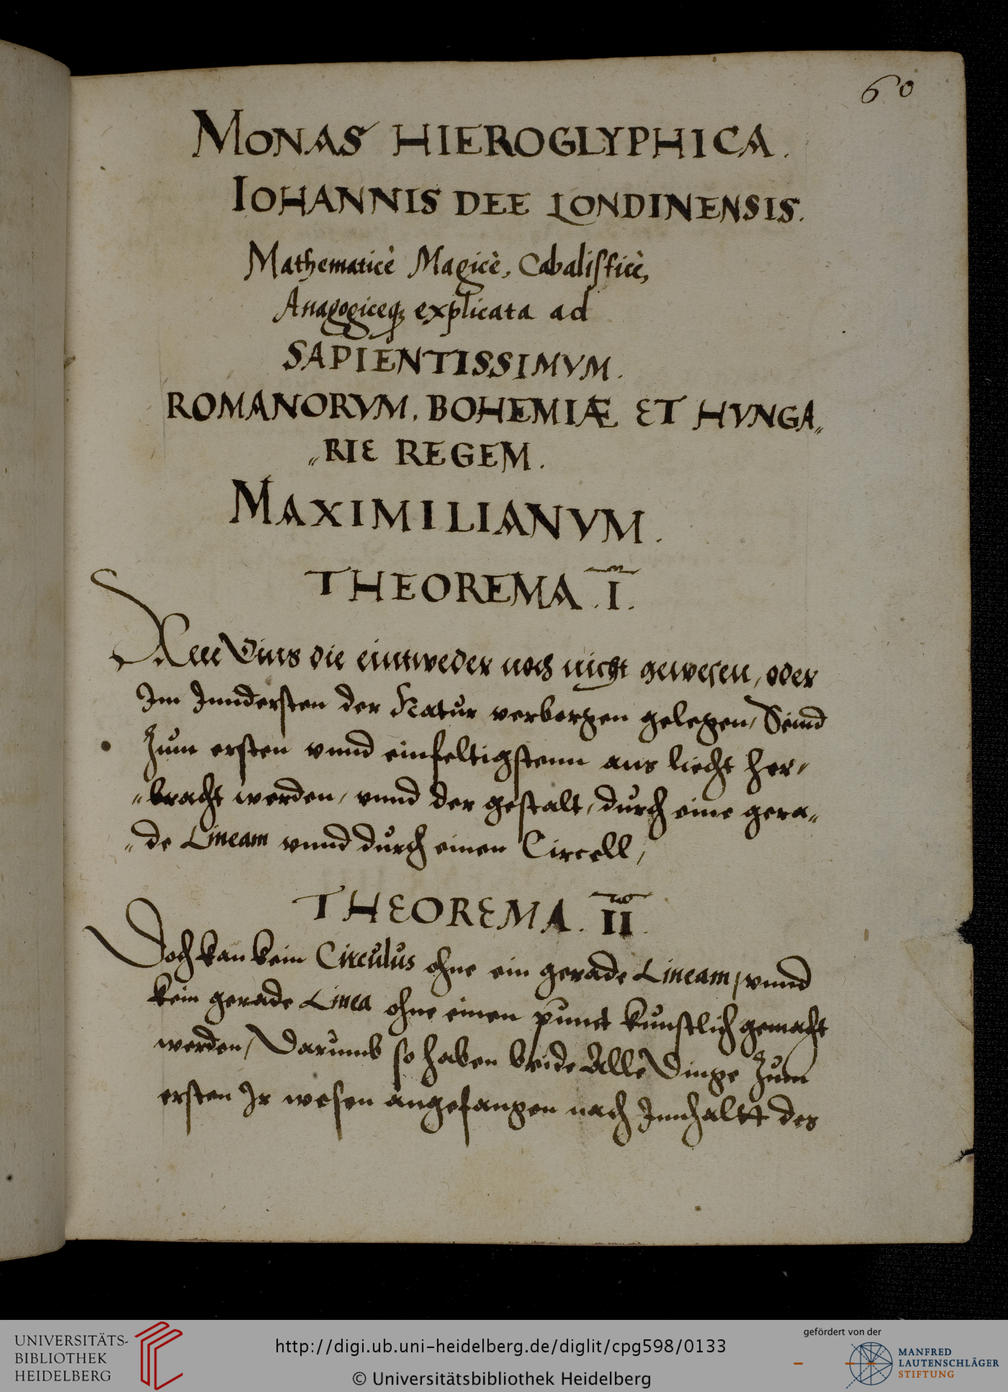 60
MONAS HIEROGLYPHICA.
IOHANNIS DEE LONDINENSIS.
Mathematicè Magicè, Cabalisticè,
Anagogiceq; explicata ad
SAPIENTISSIMVM.
ROMANORVM, BOHEMIÆ ET HVNGA„
„RIE REGEM.
MAXIMILIANVM.
THEOREMA .I.
Alle Ding die eintweder noch nicht gewesen, oder
Im Inndersten der Natur verborgen gelegen, Seind
Zum ersten vnnd einfeltigstenn ans liecht her„
„bracht worden, vnnd der gestalt, durch eine gera„
„de Lineam vnnd durch einen Circell,
THEOREMA. II.
Doch kan kein Circulus ohne ein gerade Lineam, vnnd
kein gerade Linea ohne einen punct kunstlich gemacht
werden, Darumb so haben beide Alle Dinge Zum
ersten Ir wesen angefangen nach Innhaltt des
UNIVERSITÄTS-
BIBLIOTHEK
HEIDELBERG
http://digi.ub.uni-heidelberg.de/diglit/cpg598/0133
© Universitätsbibliothek Heidelberg
gefördert von der
MANFRED
LAUTENSCHLÄGER
STIFTUNG